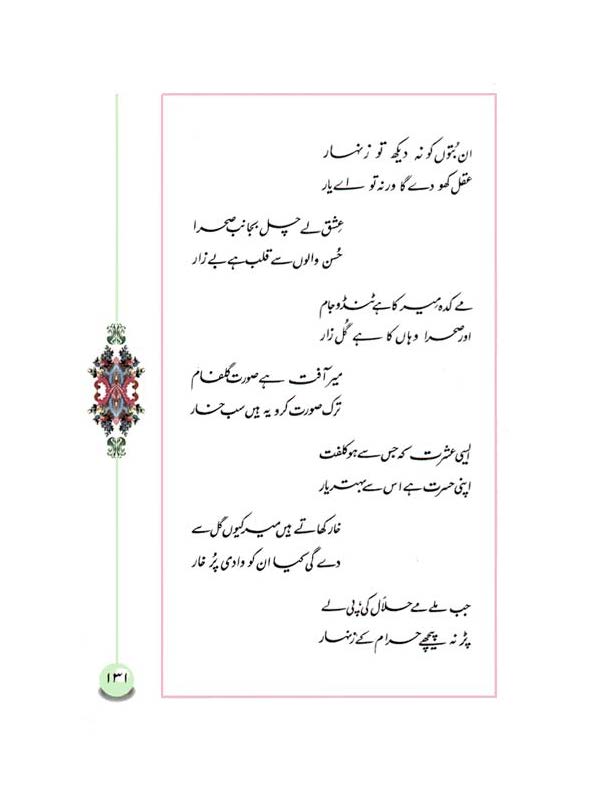 ان بُتوں کو نہ دیکھ تو زنہار
عقل کھو دے گا ورنہ تو اے یار
عِشق لے چل بجانب صحرا
حُسن والوں سے قلب ہے بے زار
مے کدہ میر کا ہے ٹنڈو جام
اور صحرا وہاں کا ہے گُل زار
میر آفت ہے صورت گلفام
ترک صورت کرو یہ ہیں سب خار
ایسی عشرت کہ جس سے ہو کلفت
اپنی حسرت ہے اس سے بہتر یار
خار کھاتے ہیں میر کیوں گل سے
دے گی کیا ان کو وادی پُر خار
جب ملے مے حلاَل کی پی لے
پڑ نہ پیچھے حرام کے زنہار
۱۳۱